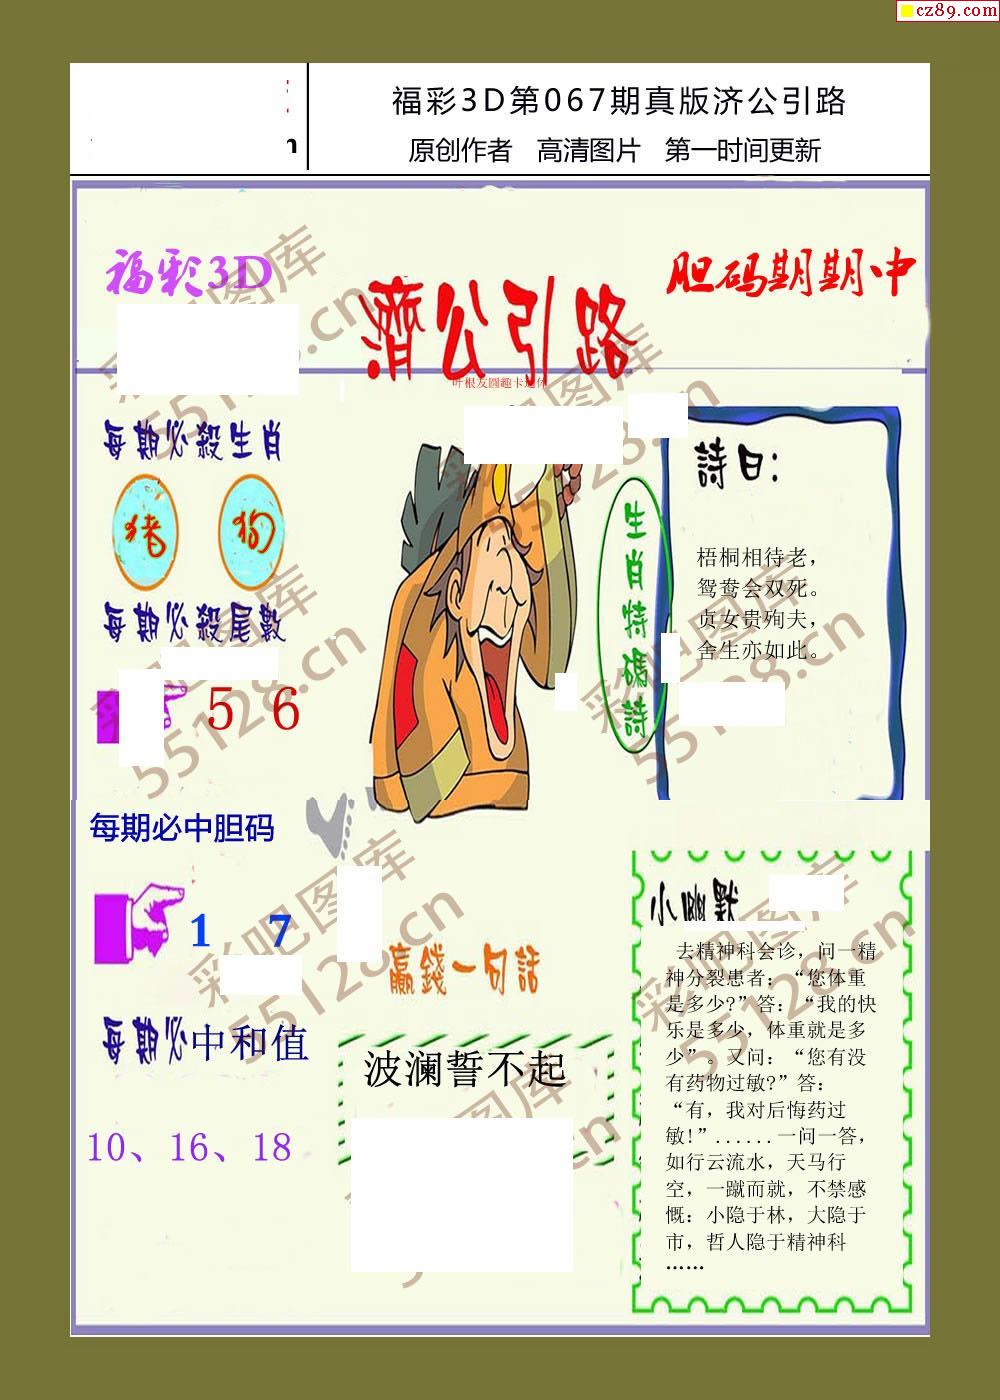 cz89.com
福彩3D第067期真版济公引路
原创作者 高清图片 第一时间更新
福彩3D
濟公引路
胆码期期中
叶根友圆趣卡通体
每期必殺生肖
猪 狗
每期必殺尾數
5 6
生肖特碼詩
詩曰：
梧桐相待老，
鸳鸯会双死。
贞女贵殉夫，
舍生亦如此。
每期必中胆码
1 7
每期必中和值
10、16、18
贏錢一句話
波澜誓不起
小幽默
去精神科会诊，问一精
神分裂患者；“您体重
是多少?”答：“我的快
乐是多少，体重就是多
少”。又问：“您有没
有药物过敏?”答：
“有，我对后悔药过
敏!”......一问一答，
如行云流水，天马行
空，一蹴而就，不禁感
慨：小隐于林，大隐于
市，哲人隐于精神科
……
彩吧图库
55128.cn